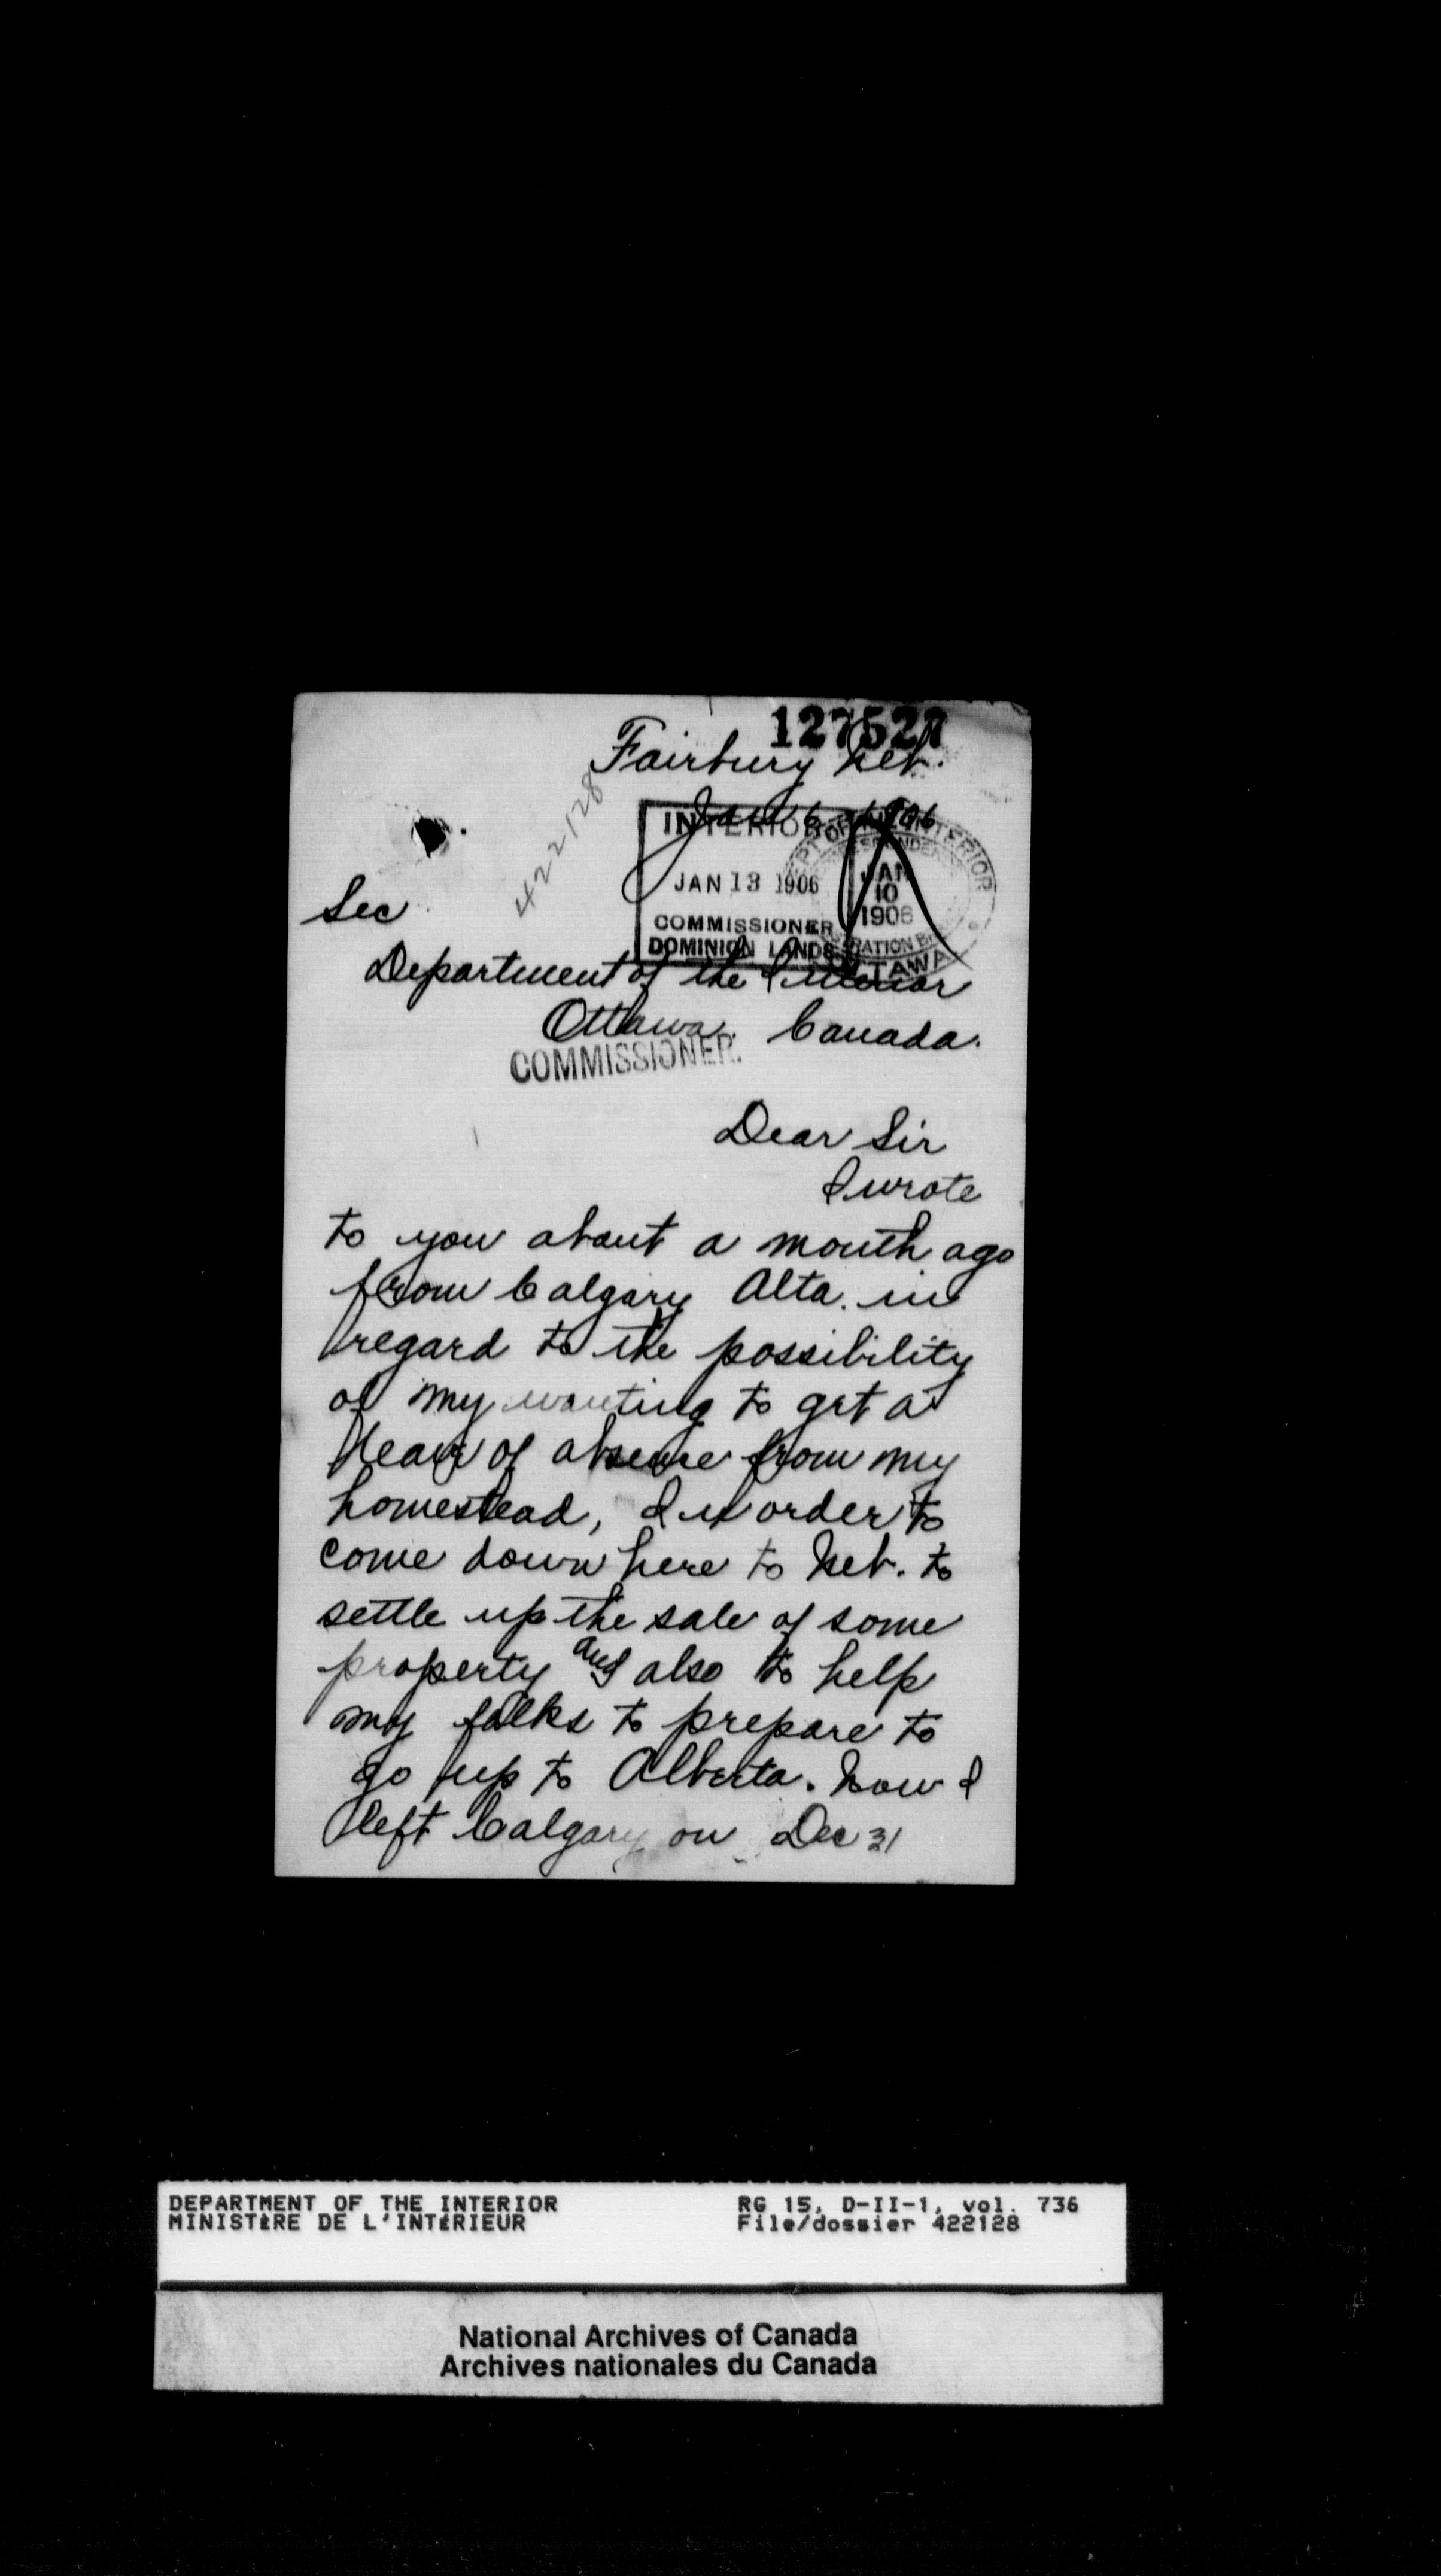 127527
Fairbury Neb.
Jan 6 1906
422128
INTERIOR
JAN 13 1906
COMMISSIONER
DOMINION LANDS
INTERIOR
JAN
10
1906
OTTAWA
Sec
Department of the Interior
Ottawa. Canada.
COMMISSIONER.
Dear Sir
I wrote
to you about a month ago
from Calgary Alta. in
regard to the possibility
of my wanting to get a
leave of absence from my
homestead, in order to
come down here to Neb. to
settle up the sale of some
property and also to help
my folks to prepare to
go up to Alberta. Now I
left Calgary on Dec 31
DEPARTMENT OF THE INTERIOR
MINISTÈRE DE L'INTÉRIEUR
RG 15, D-II-1, vol. 736
File/dossier 422128
National Archives of Canada
Archives nationales du Canada